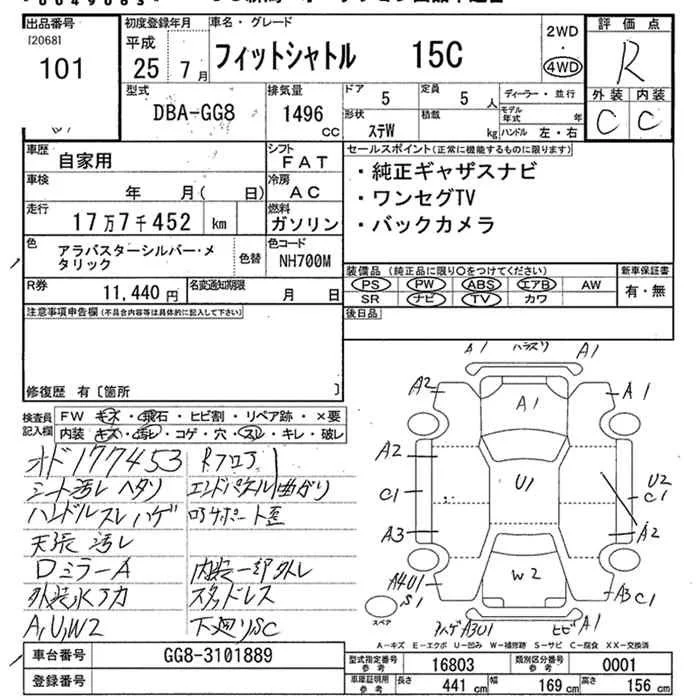 出品番号 初度登録年月 車名・グレード 2WD ・ 4WD 評価点
[2068] 101
平成 25年 7月
フィットシャトル 15C
R
型式 DBA-GG8
排気量 1496 CC
ドア 5 定員 5人
形状 ステW 積載 kg
ディーラー・並行
モデル年式 年
ハンドル 左・右
外装 内装
C C
車歴 自家用
シフト FAT
セールスポイント(正常に機能するものに限ります)
・純正ギャザスナビ
・ワンセグTV
・バックカメラ
車検 年 月( 日)
冷房 AC
走行 17万7千452 km
燃料 ガソリン
色 アラバスターシルバー・メタリック
色替
色コード NH700M
装備品(純正品に限り○をつけてください)
PS PW ABS エアB AW
SR ナビ TV カワ
新車保証書 有・無
R券 11,440円
名変通知期限 月 日
後日品
注意事項申告欄(不具合内容等は具体的に記入して下さい)
修復歴 有〔箇所 〕
検査員記入欄
FW キズ・飛石・ヒビ割・リペア跡・×要
内装 キズ・汚レ・コゲ・穴・スレ・キレ・破レ
オド177453
シート汚レ ヘタリ
ハンドルスレ ハゲ
天張 汚レ
Dミラー A
A,U,W2
エンドパネル曲がり
内装一部外レ
スタッドレス
下廻りSC
A1 A1
A2 A1
A1
A2 U1 U2
C1 C1
A3 A2
W2
A4U1 S1 A3 C1
スペア
A3U1 ヒビ A1
A-キズ E-エクボ U-凹み W-補修跡 S-サビ C-腐食 XX-交換済
車台番号 GG8-3101889
登録番号
型式指定番号 参考 16803
類別区分番号 参考 0001
車庫証明用 参考 長さ 441cm 幅 169cm 高さ 156cm